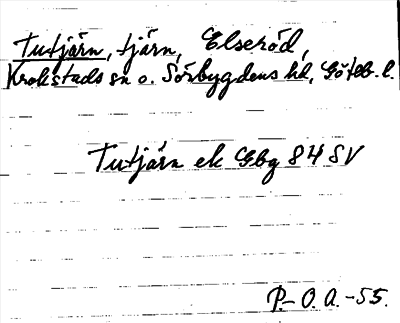 Tutjärn, tjärn, Elseröd,
Krokstads sn o. Sörbygdens hd, Göteb. l.
Tutjärn ek Gbg 84 SV
P.-O.A.-55.